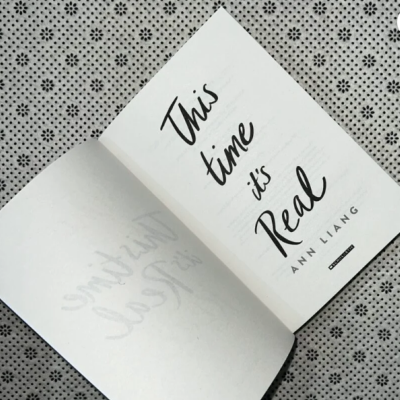 This
time
it's
Real
ANN LIANG